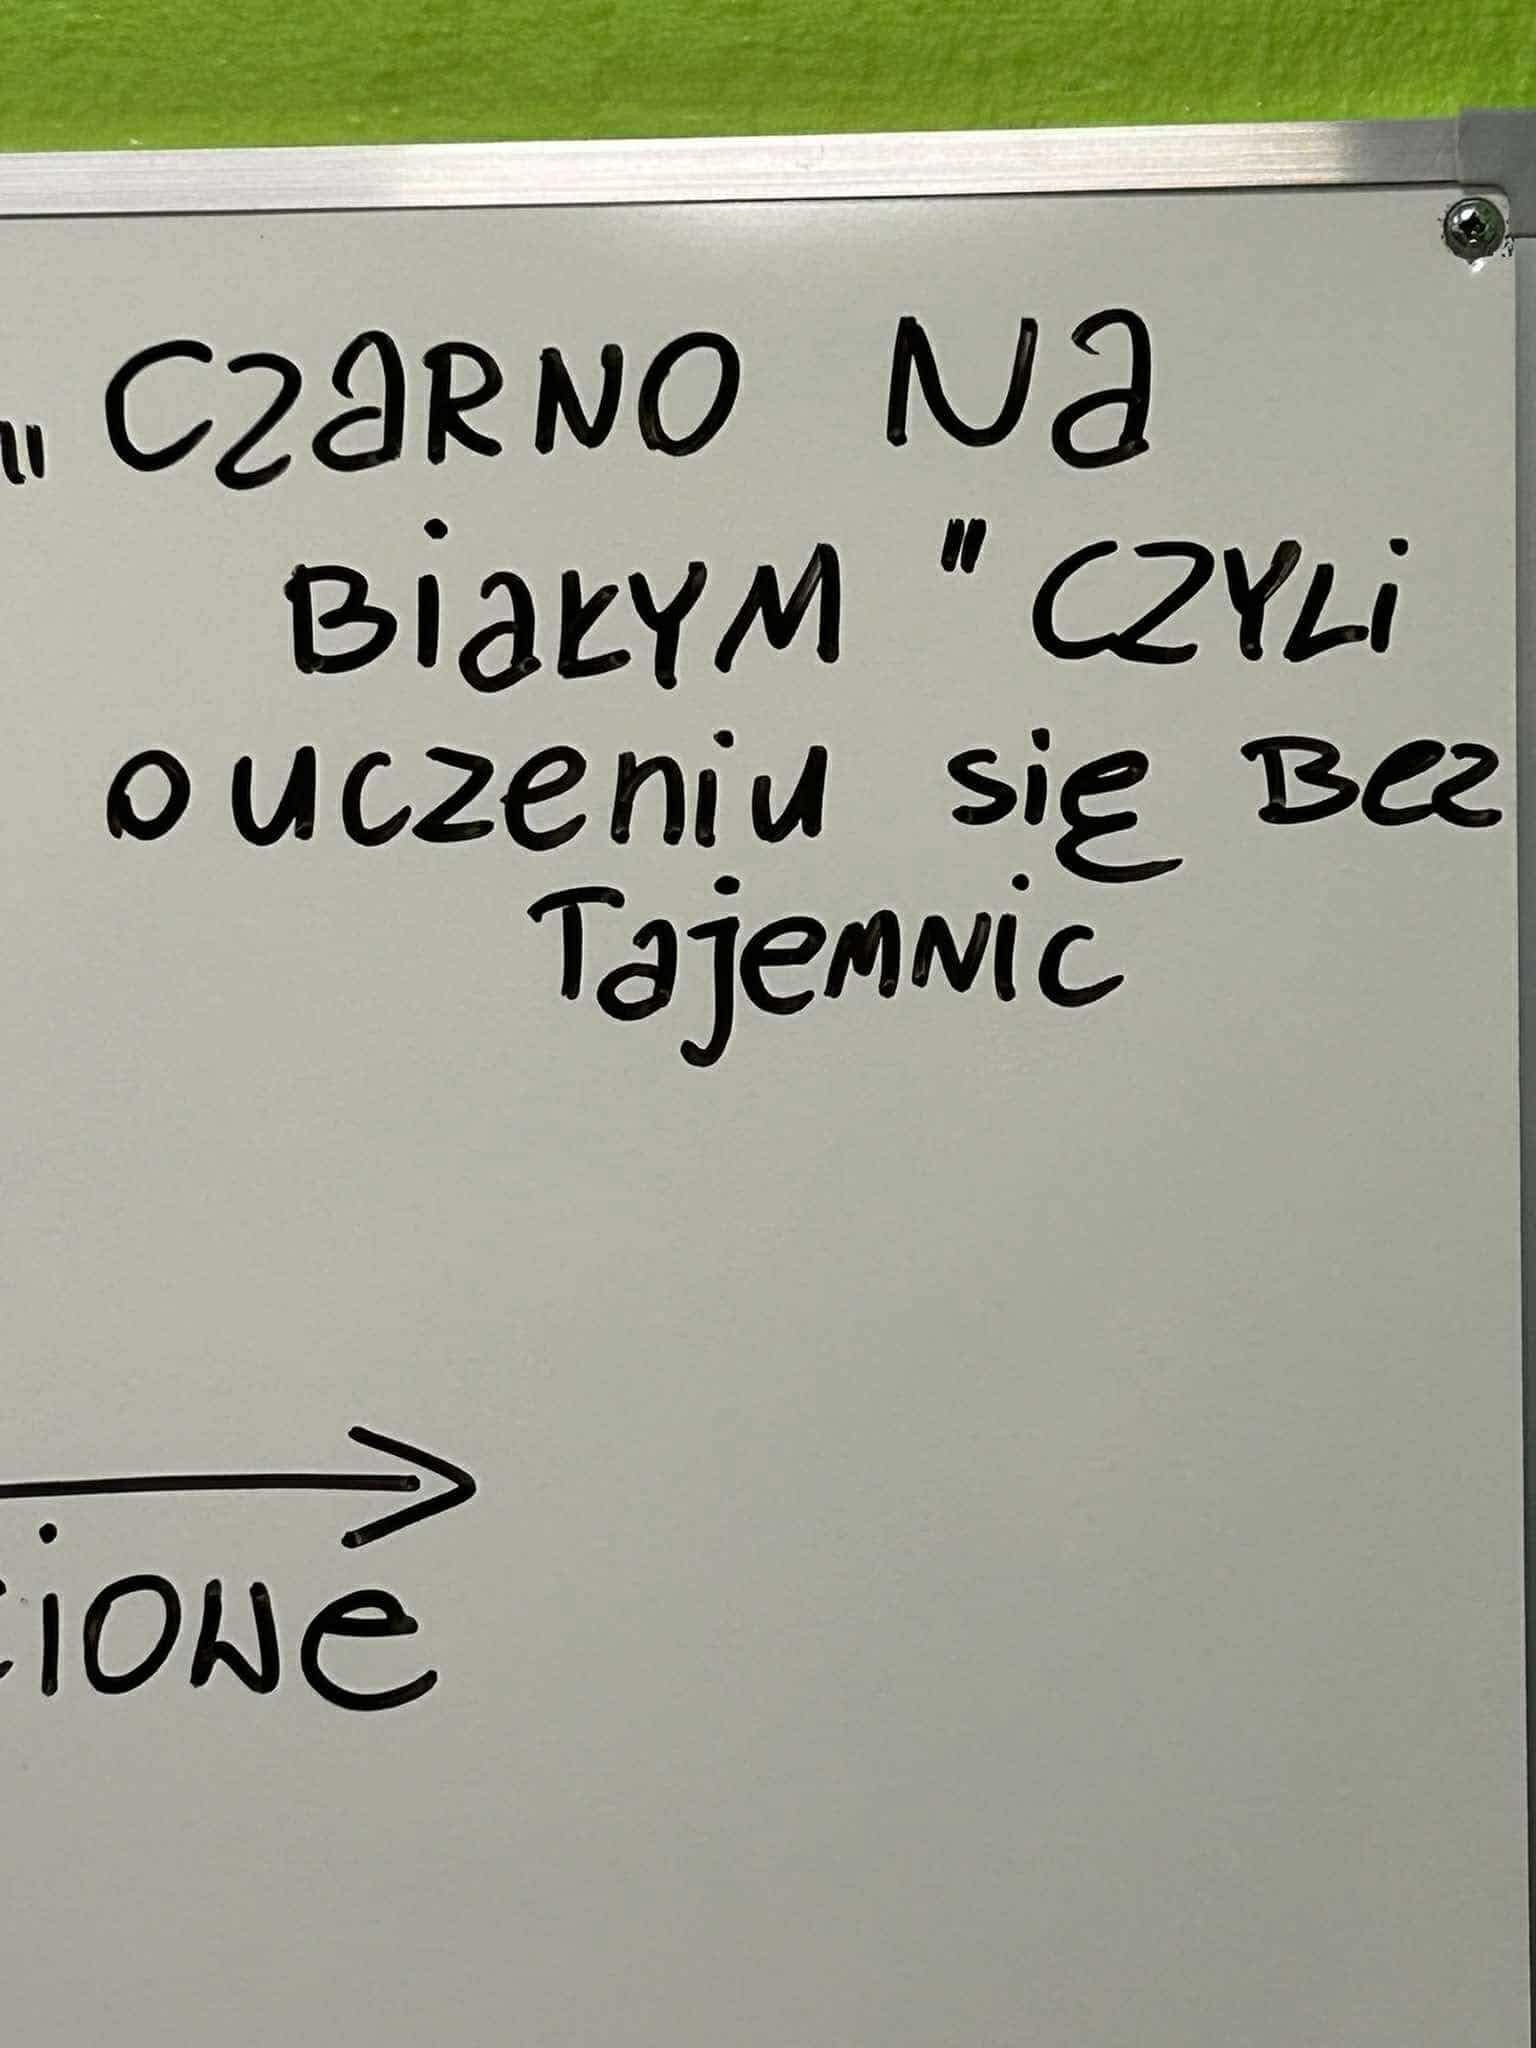 „CZARNO NA
BIAŁYM" CZYLI
O UCZENIU SIĘ BEZ
TAJEMNIC